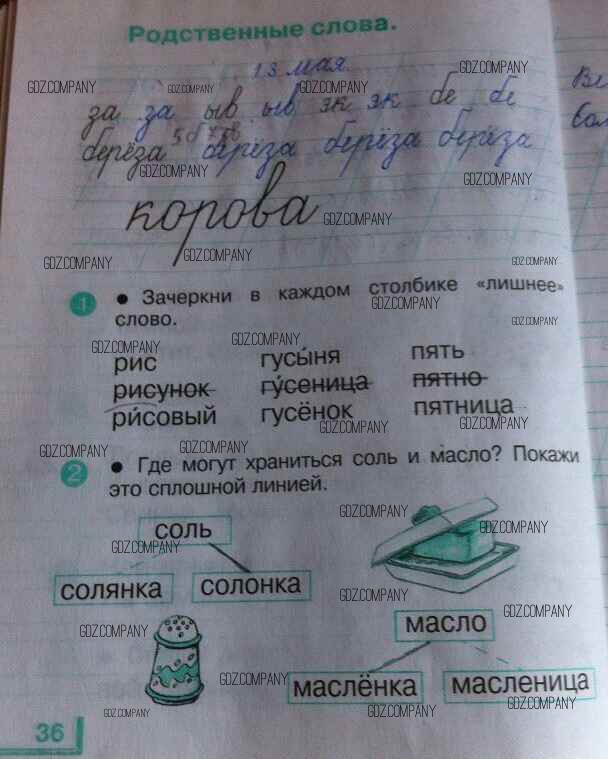 Родственные слова.
13 мая.
за за ыв ыв эк эк бе бе
берёза берёза берёза берёза
корова
1 • Зачеркни в каждом столбике «лишнее»
слово.
рис гусы́ня пять
рисунок гу́сеница пятно
ри́совый гусёнок пятница
2 • Где могут храниться соль и масло? Покажи
это сплошной линией.
соль
солянка солонка
масло
маслёнка масленица
36
GDZ.COMPANY